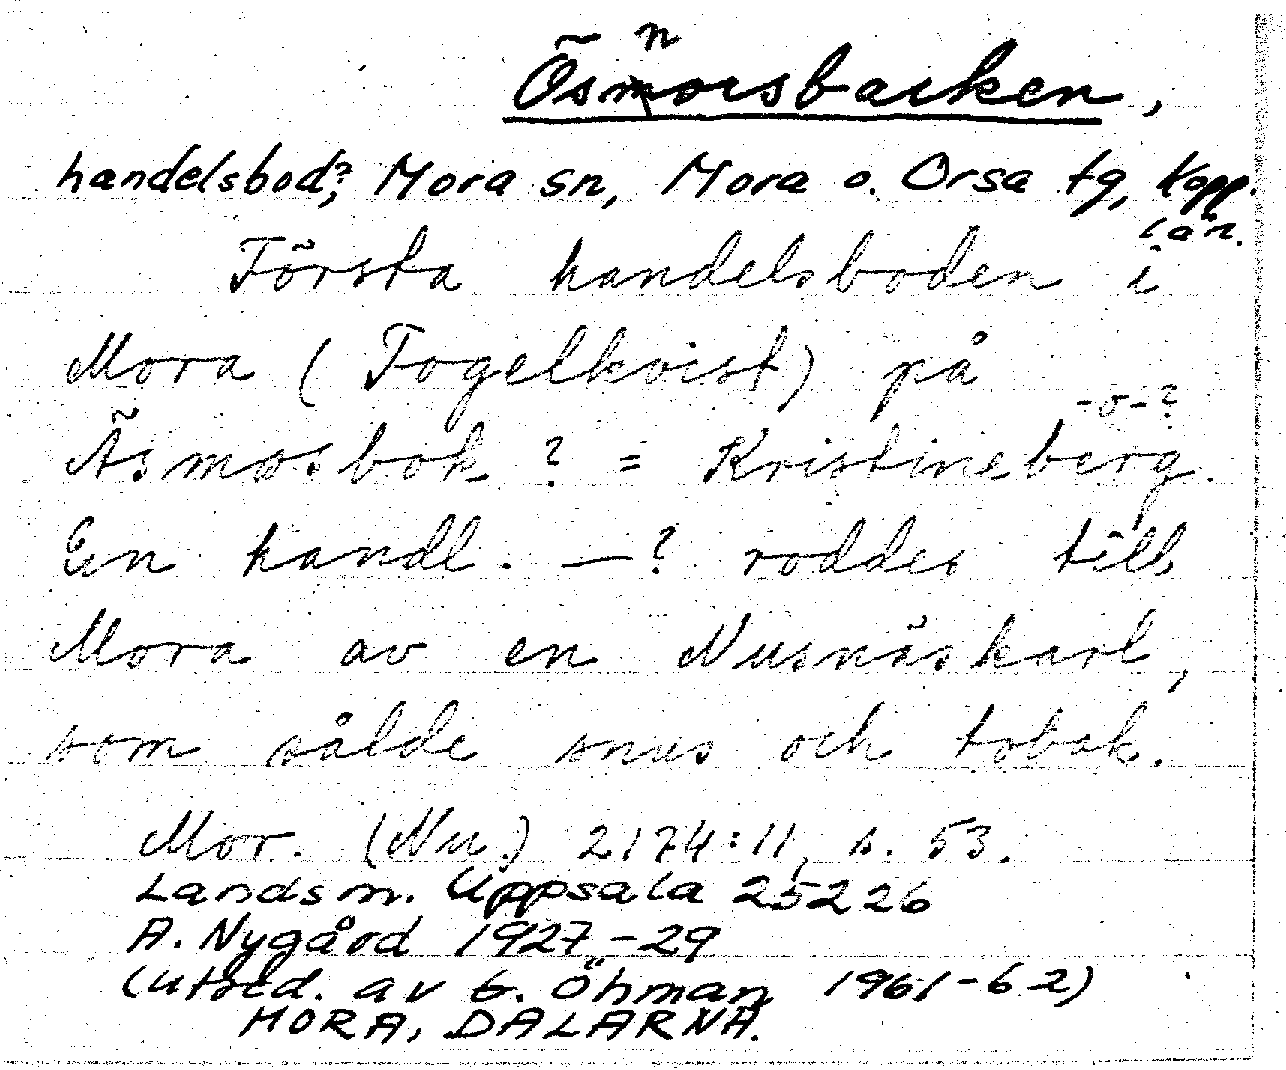 n
Õsmorsbacken,
handelsbod?, Mora sn, Mora o. Orsa tg, Kopp.
län.
Första handelsboden i
Mora (Fogelkvist) på
-o-?
Äsmosbok ? = Kristineberg.
En handl. —? roddes till
Mora av en Nusnäskarl,
som sålde snus och tobak.
Mor. (Nu) 2174:11, s. 53.
Landsm. Uppsala 25226
A. Nygård 1927-29
(utred. av G. Öhman 1961-62)
MORA, DALARNA.